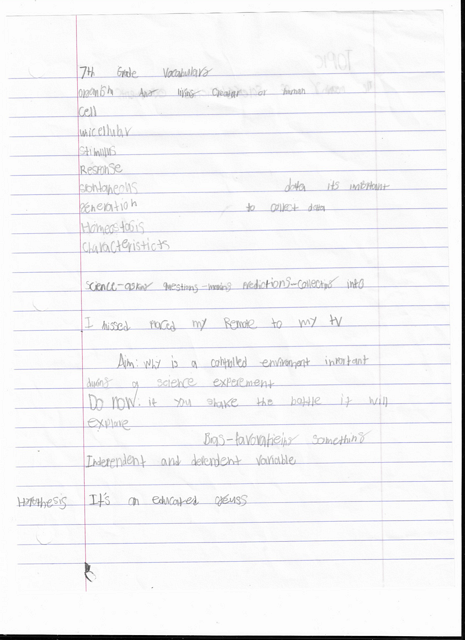 7th Grade Vocabulary
organism Any living creator or human
Cell
unicellular
stimulis
Response
spontaneous
data its imentant
generation
to collect data
Homeostasis
Characteristicts
Science-asking questions-making predictions-collecting info
I missed placed my Remote to my tv
Aim: why is a controlled environment imentant
durent a science experement
Do now: if you shake the bottle it will
explode
Bias-favoratheing something
Independent and dependent variable
Hypothesis It's an educated geuss